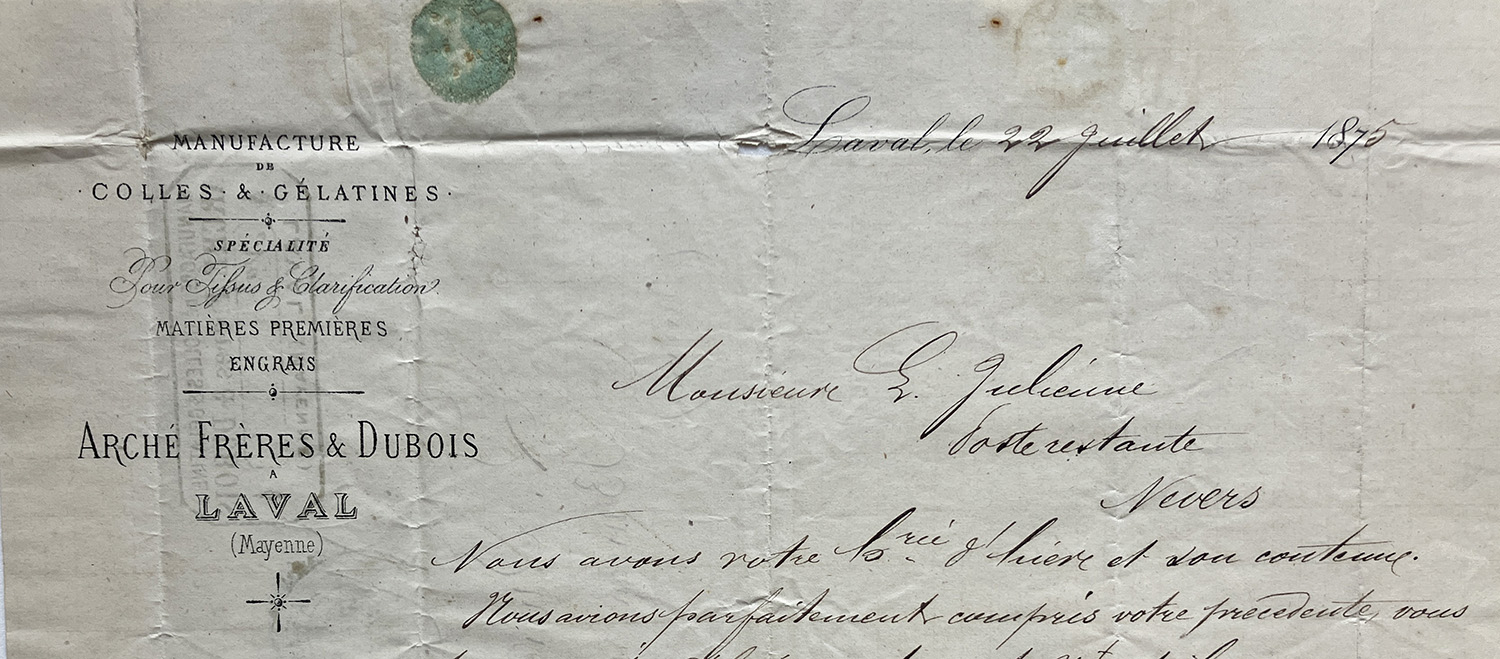 MANUFACTURE
DE
COLLES & GÉLATINES
SPÉCIALITÉ
Pour Tissus & Clarification
MATIÈRES PREMIÈRES
ENGRAIS
ARCHÉ FRÈRES & DUBOIS
A
LAVAL
(Mayenne)
Laval, le 22 Juillet 1875
Monsieur E. Julienne
Poste restante
Nevers
Nous avons votre d'hier et son contenu.
Nous avions parfaitement compris votre precedente, vous